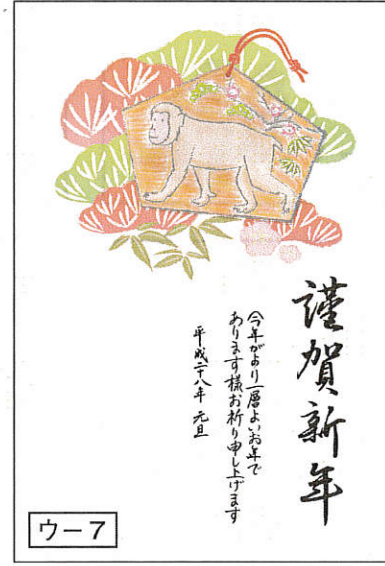 謹賀新年
今年がより一層よいお年で
あります様お祈り申し上げます
平成二十八年 元旦
ウー7